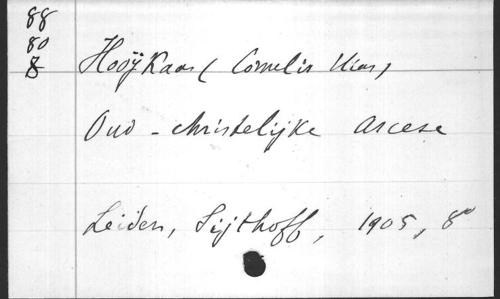 88
80
8
Hooÿkaas (Cornelis
Oud-christelijke ascese
Leiden, Sijthoff, 1905, 8°